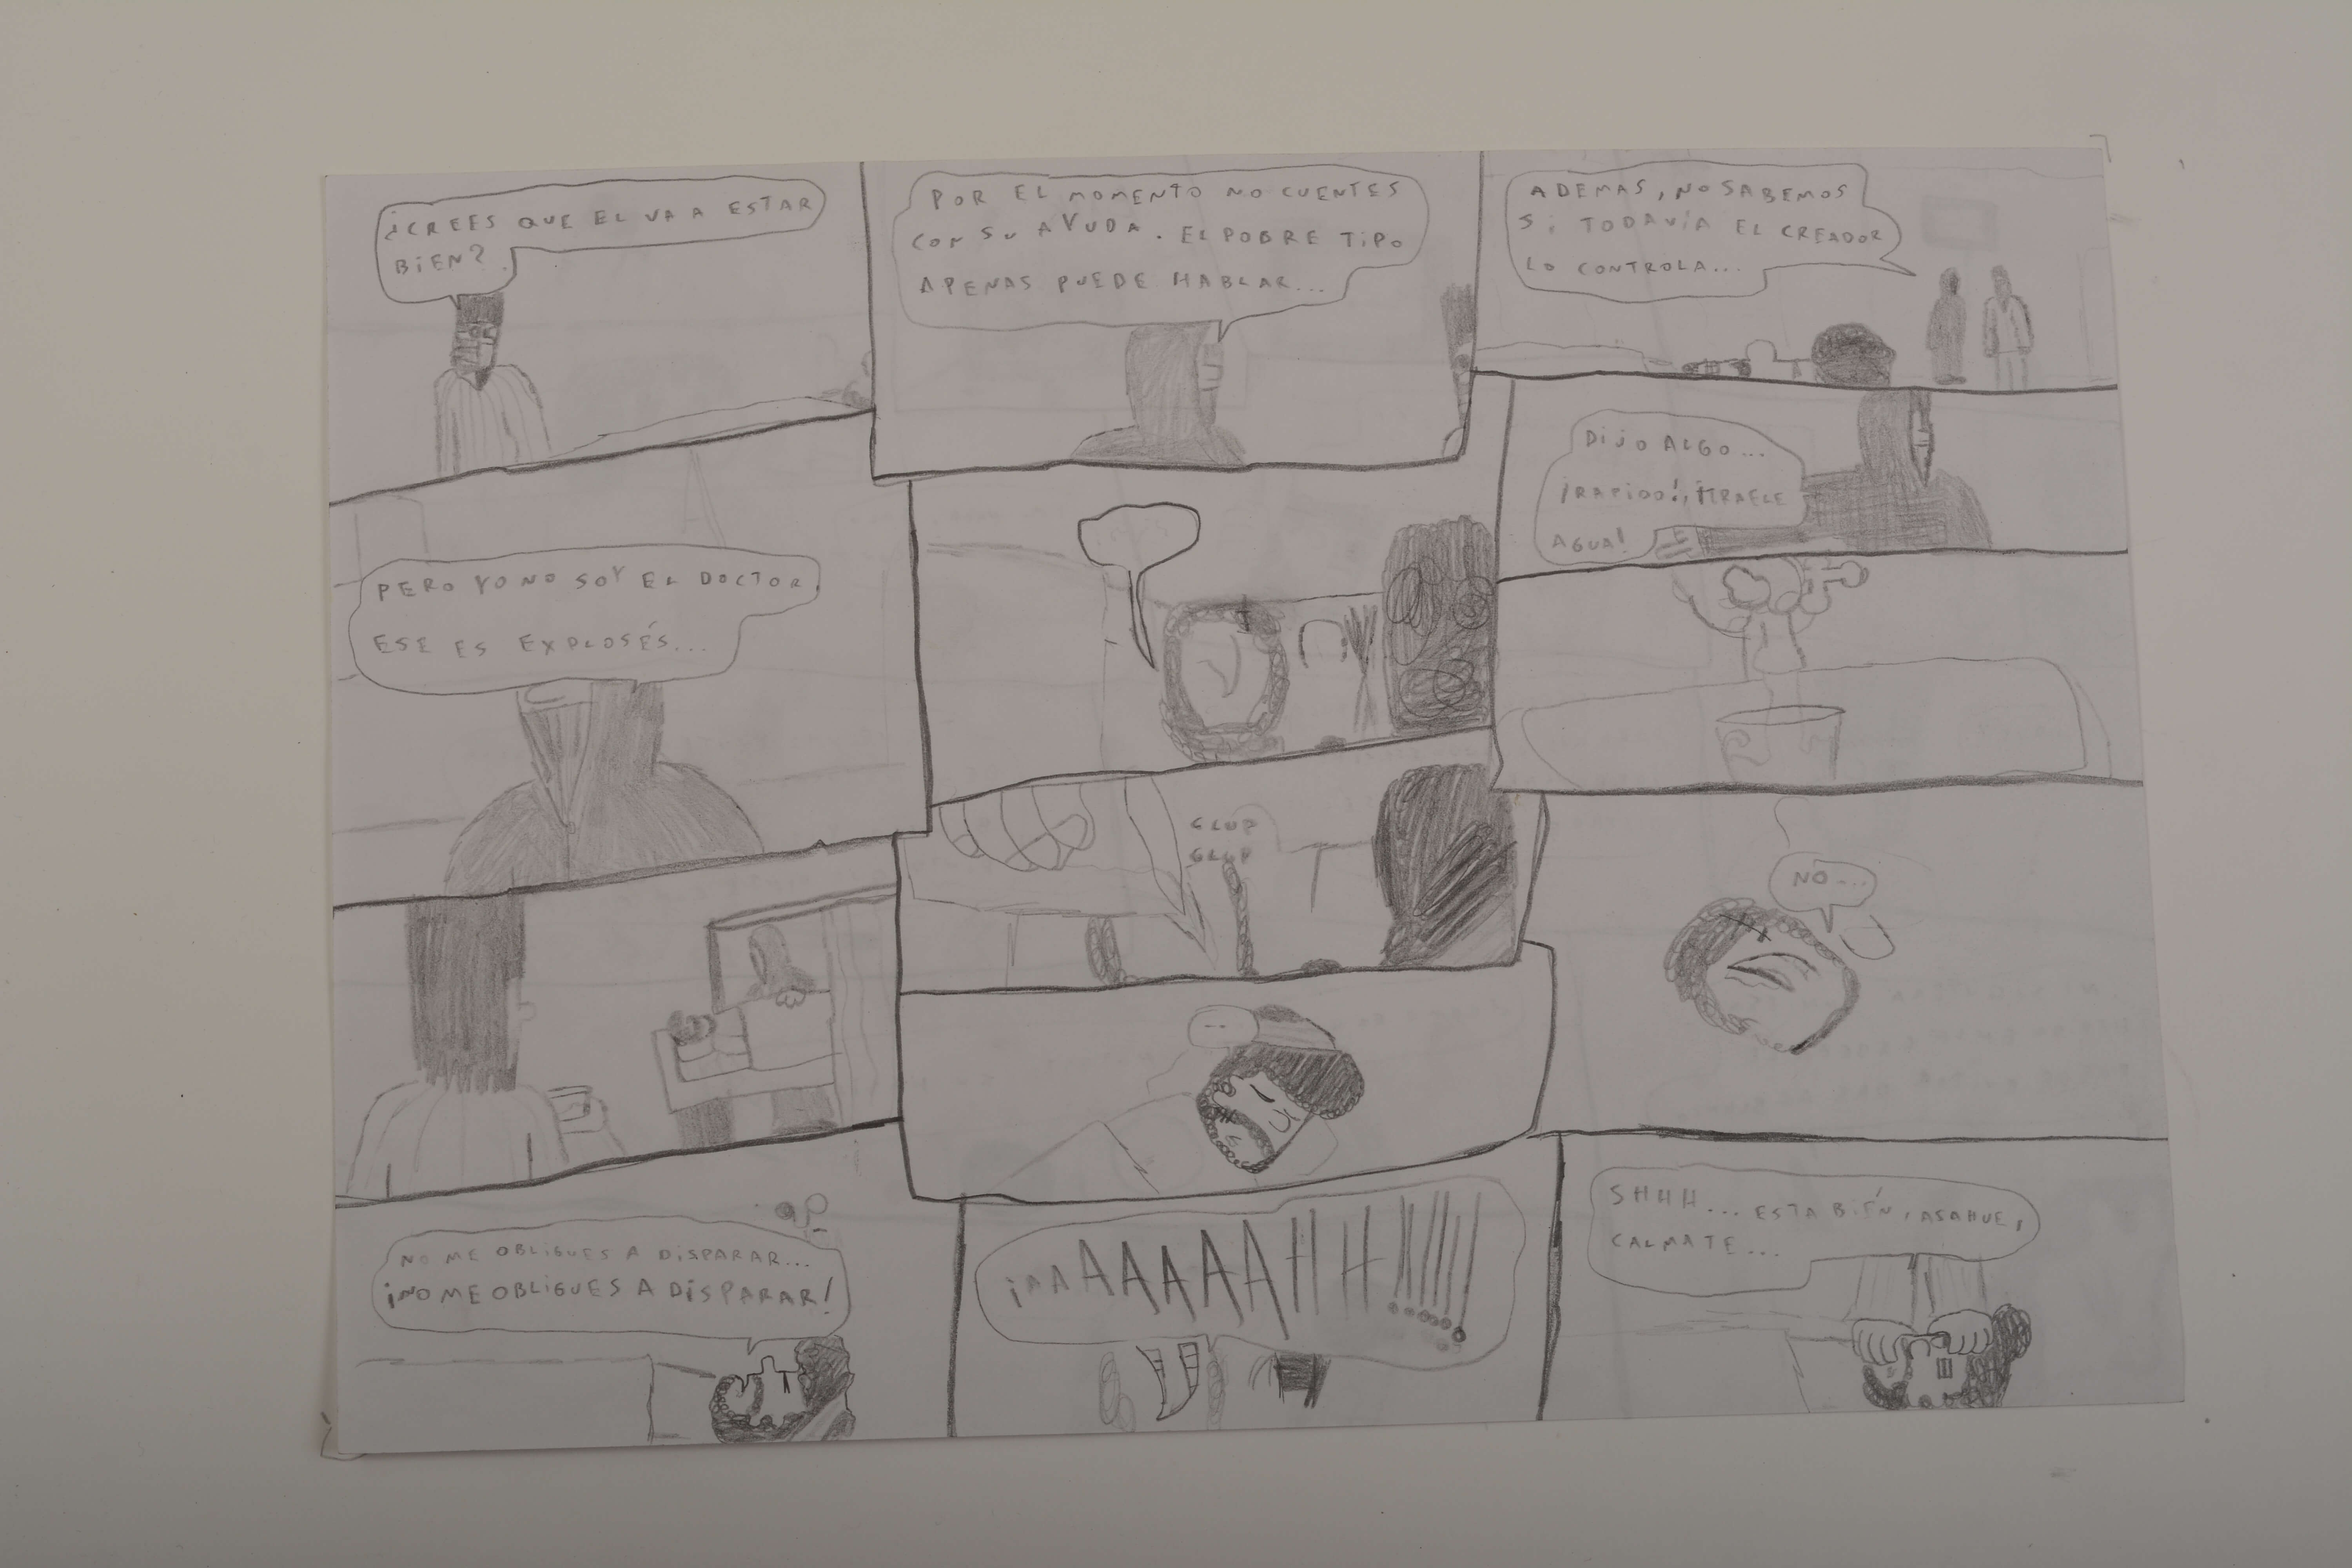 ¿CREES QUE EL VA A ESTAR
BIEN?
POR EL MOMENTO NO CUENTES
CON SU AYUDA. EL POBRE TIPO
APENAS PUEDE HABLAR...
ADEMAS, NO SABEMOS
Si TODAVÍA EL CREADOR
LO CONTROLA...
PERO YO NO SOY EL DOCTOR,
ESE ES EXPLOSÉS...
DIJO ALGO...
¡RAPIDO!, TRAELE
AGUA!
GLUP
GLUP
...
NO...
NO ME OBLIGUES A DISPARAR...
¡NO ME OBLIGUES A DISPARAR!
¡AAAAAAAHH!!!!!!
SHHH... ESTA BIÉN, ASAHUE,
CALMATE...